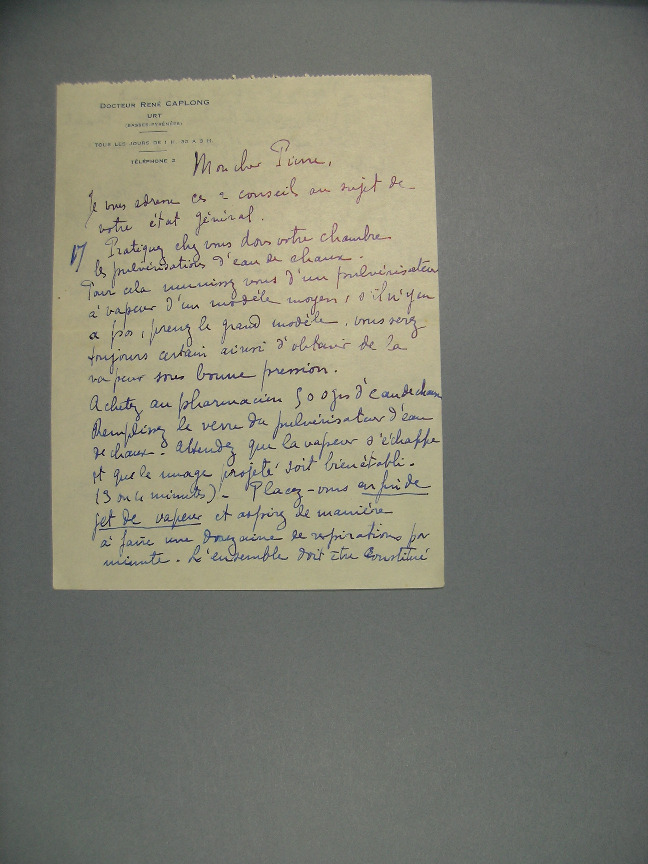 DOCTEUR RENÉ CAPLONG
URT
(BASSES-PYRÉNÉES)
TOUS LES JOURS DE 1 H. 30 A 3 H.
TÉLÉPHONE 2
Mon cher Pierre,
Je vous adresse ces 2 conseils au sujet de
votre état général.
1/ Pratiquez chez vous dans votre chambre
les pulvérisations d'eau de chaux.
Pour cela munissez vous d'un pulvérisateur
à vapeur d'un modèle moyen, s'il n'y en
a pas, prenez le grand modèle, vous serez
toujours certain ainsi d'obtenir de la
vapeur sous bonne pression.
Achetez au pharmacien 500 grs d'eau de chaux
Remplissez le verre du pulvérisateur d'eau
de chaux. Attendez que la vapeur s'échappe
et que le nuage projeté soit bien établi.
(3 ou 4 minutes). Placez-vous en fin de
jet de vapeur et aspirez de manière
à faire une douzaine de respirations par
minute. L'ensemble doit être constitué